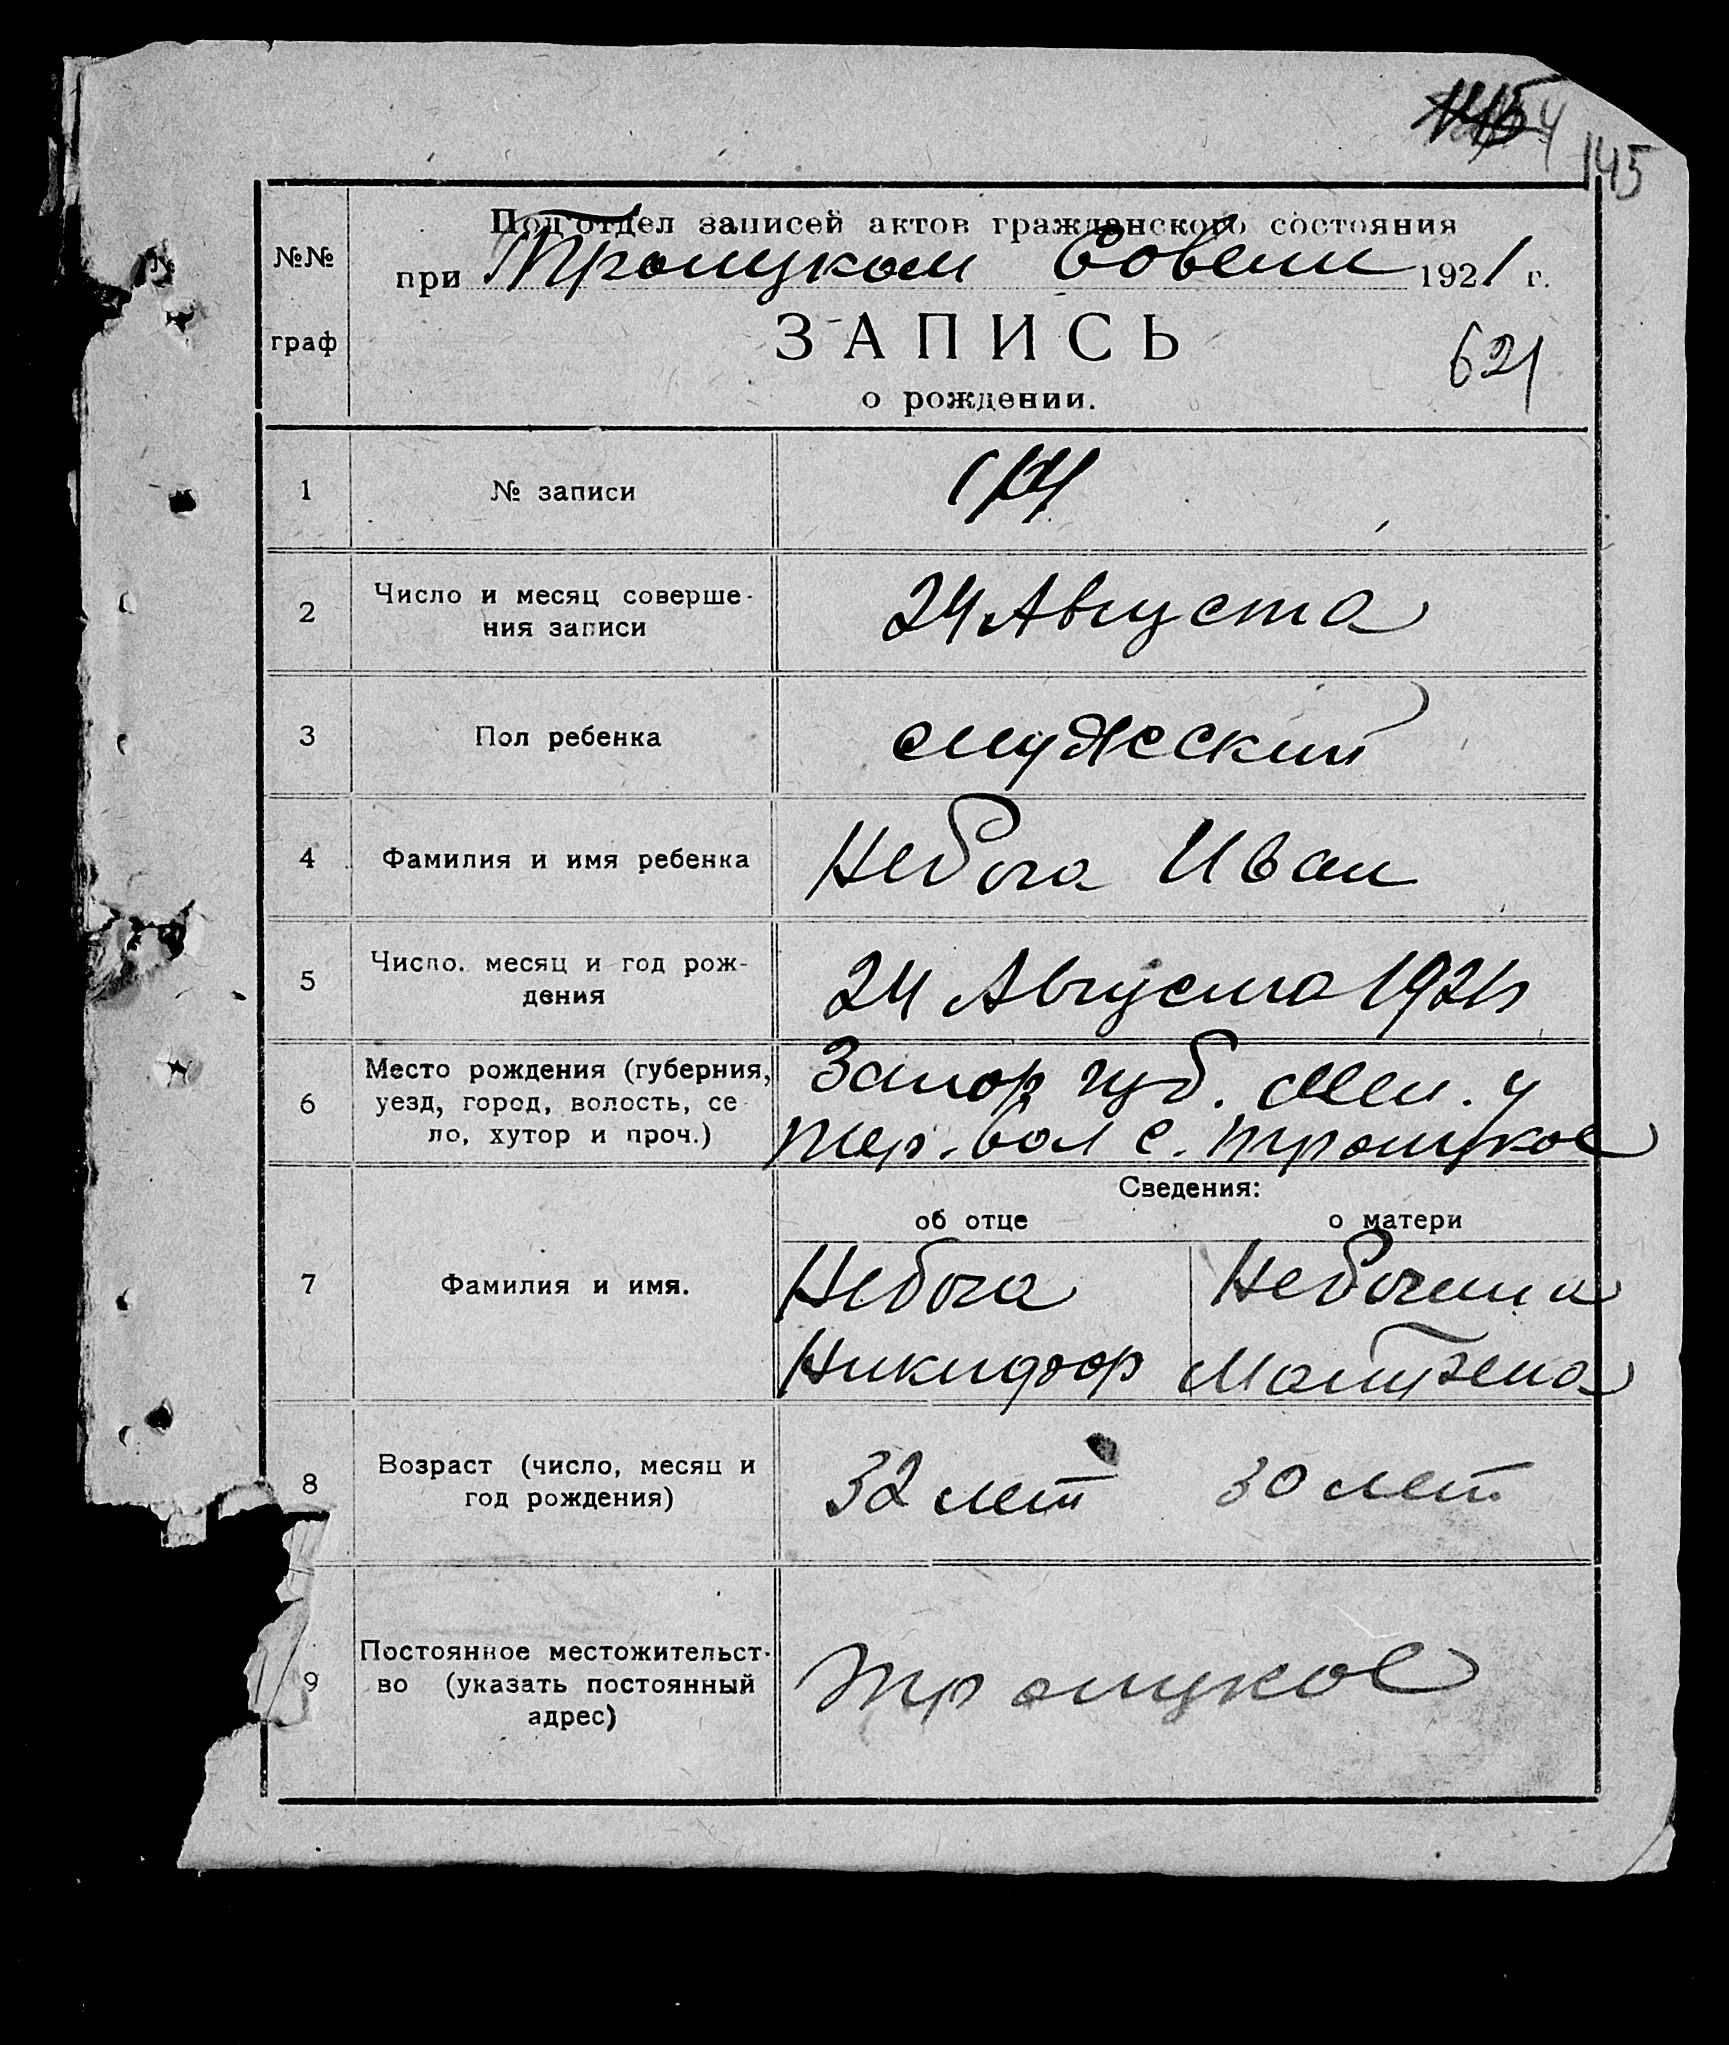 145
Подотдел записей актов гражданского состояния
№№
при Троицком Совети 1921 г.
граф
ЗАПИСЬ
621
о рождении.
1 № записи
2 Число и месяц соверше- 24 Августа
ния записи
3 Пол ребенка мужеский
4 Фамилия и имя ребенка Небога Иван
5 Число. месяц и год рож- 24 Августа 1921 г
дения
Место рождения (губерния, Запор губ. Мел. у
6 уезд, город, волость, се- вол с. Троицкое
ло, хутор и проч.)
Сведения:
об отце о матери
7 Фамилия и имя. Небога
Никифор
8 Возраст (число, месяц и 32 лет 30 лет
год рождения)
Постоянное местожительст-
9 во (указать постоянный Троицкое
адрес)